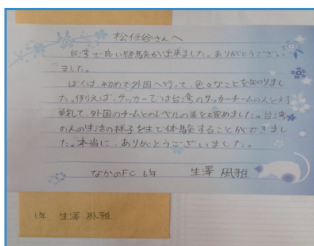 松任谷さんへ
台湾で良い経験が出来ました。ありがとうござい
ました。
ぼくは、初めて外国へ行って、色々なことを知りまし
た。例えば、サッカーでは台湾のサッカーチームの人と対
戦して、外国のチームとのレベルの差を
の人の生活の様子をまで体験することができまし
た。本当に、ありがとうございました。
なかのFC 6年 生澤 風雅
6年 生澤 風雅